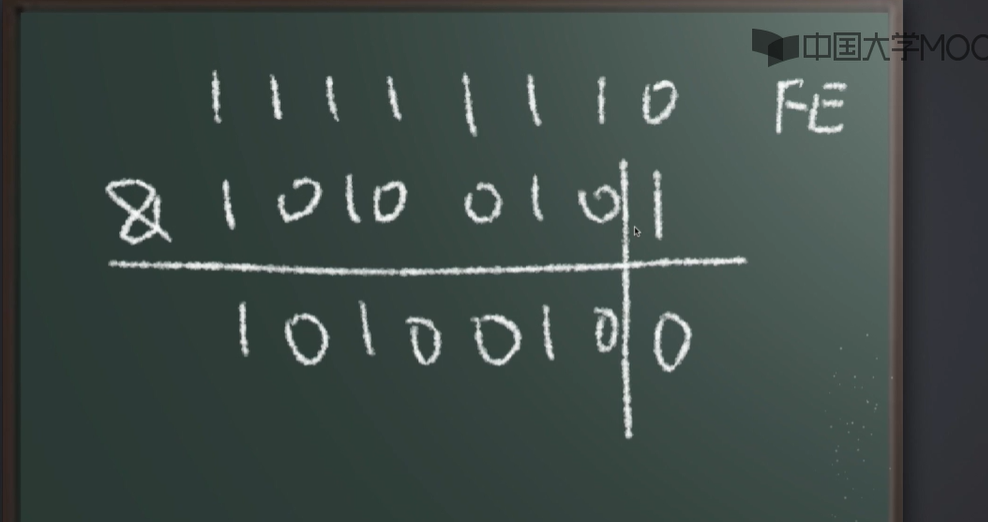 中国大学MOOC
1 1 1 1 1 1 1 0 FE
& 1 0 1 0 0 1 0 1
1 0 1 0 0 1 0 0